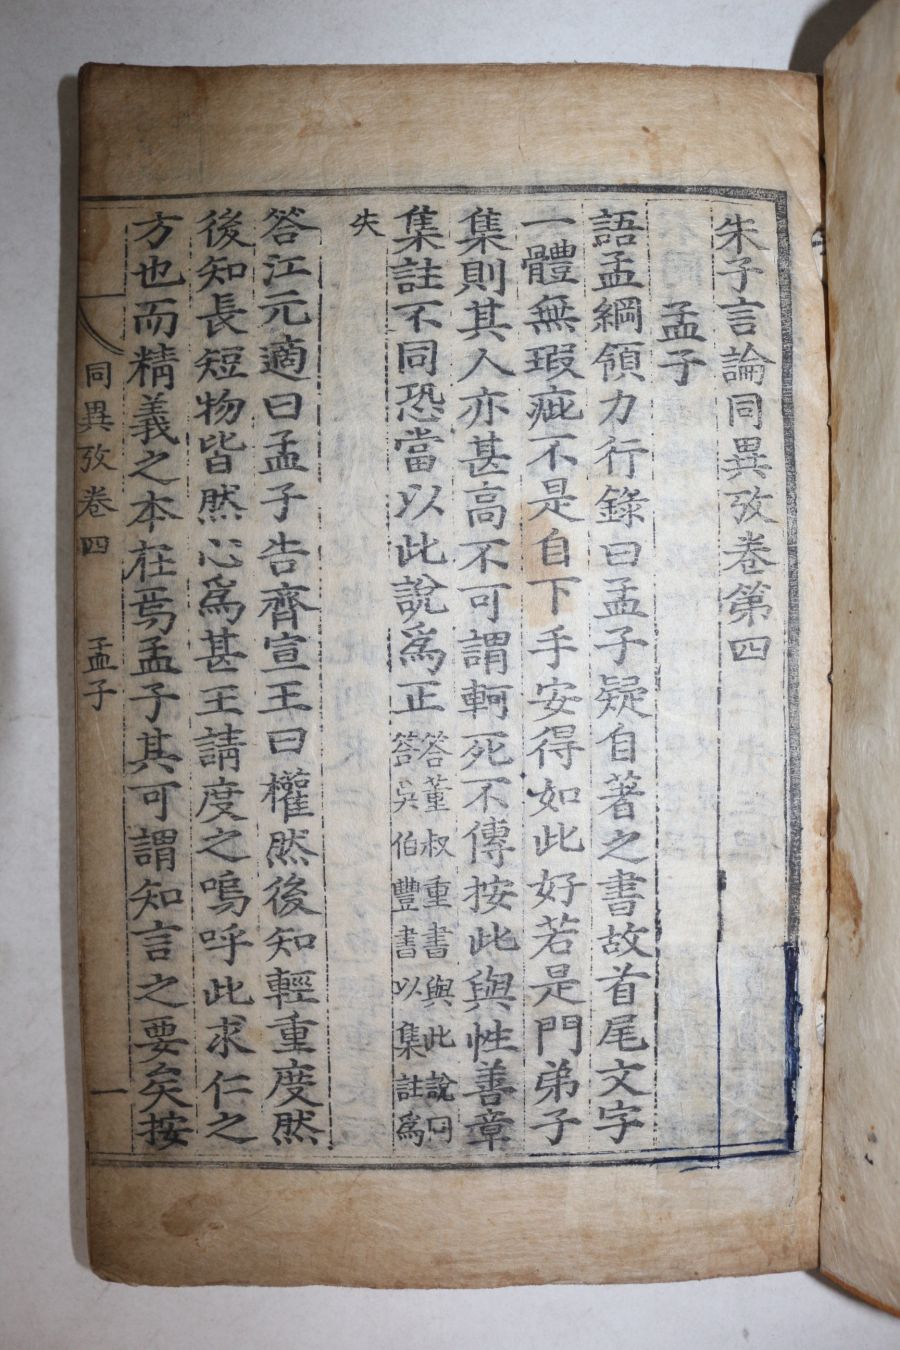 朱子言論同異攷卷第四
孟子
語孟綱領力行錄曰孟子疑自著之書故首尾文字
一體無瑕疵不是自下手安得如此好若是門弟子
集則其人亦甚高不可謂軻死不傳按此與性善章
集註不同恐當以此說爲正
答董叔重書與此說同
答吳伯豐書以集註爲
失
答江元適曰孟子告齊宣王曰權然後知輕重度然
後知長短物皆然心爲甚王請度之嗚呼此求仁之
方也而精義之本在焉孟子其可謂知言之要矣按
同異攷卷四 孟子 一